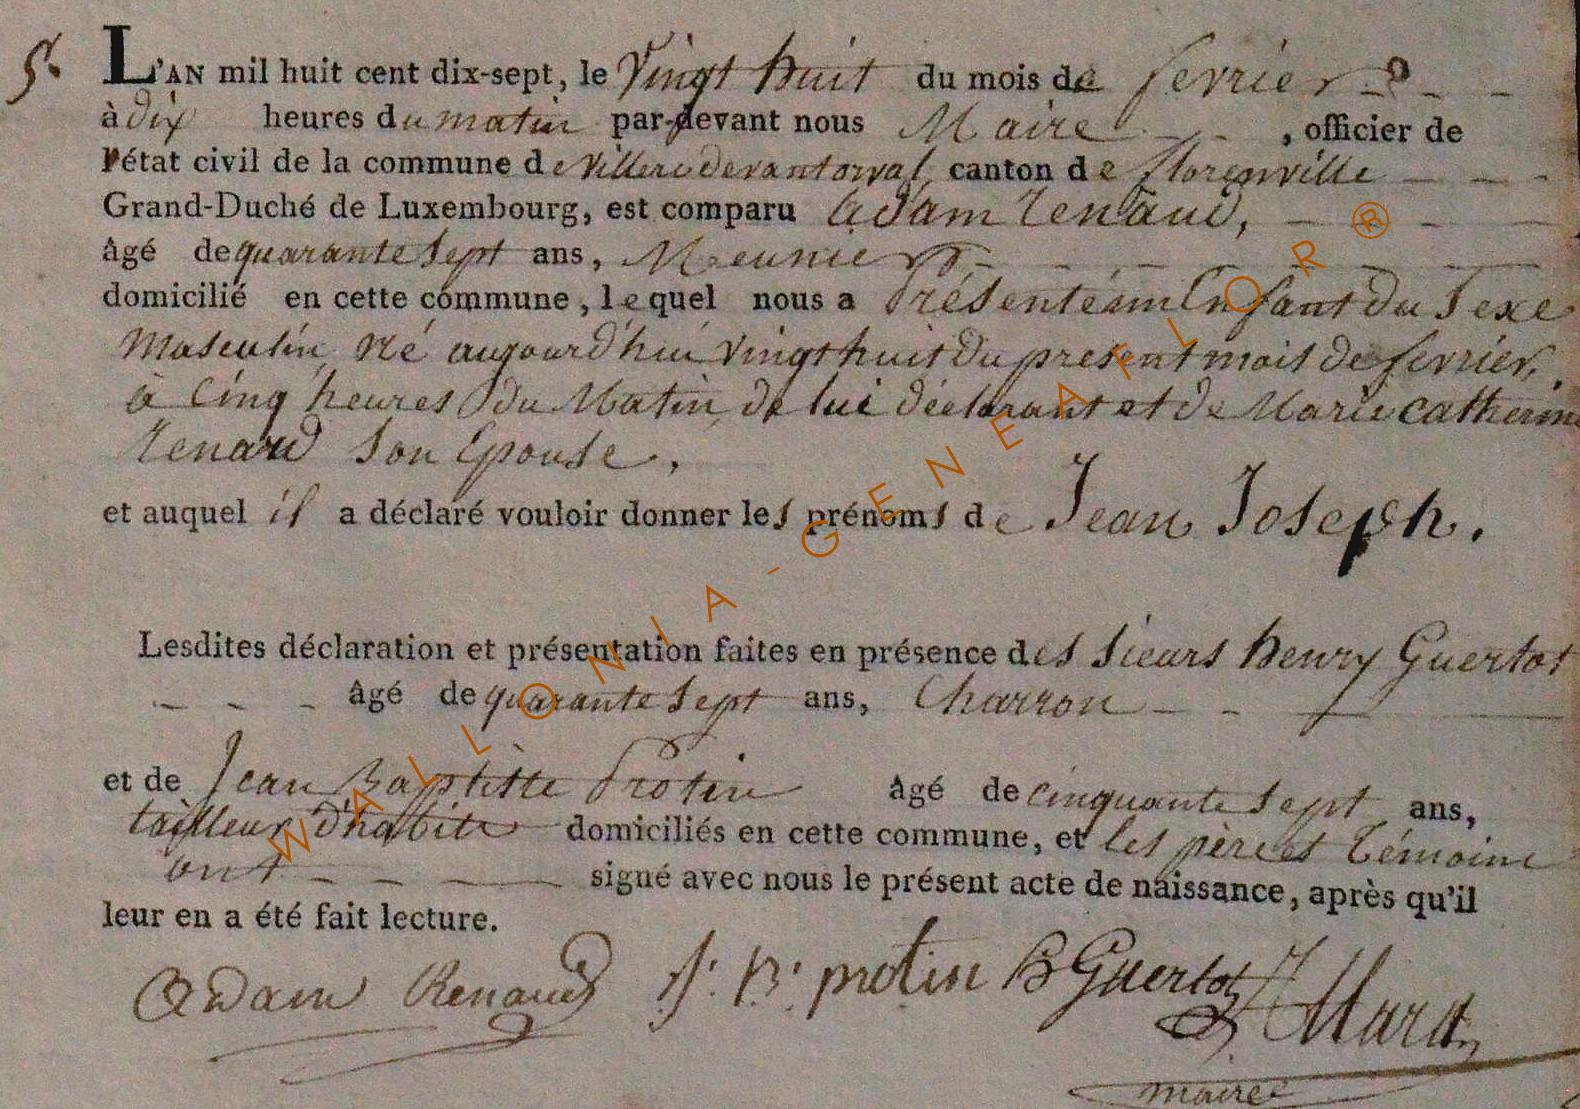 5.
L'AN mil huit cent dix-sept, le Vingt huit du mois de fevrier
à dix heures du matin par-devant nous Maire, officier de
l'état civil de la commune de Villers devant orval, canton de florenville
Grand-Duché de Luxembourg, est comparu Adam Renaud,
âgé de quarante Sept ans, Meunier
domicilié en cette commune, lequel nous a Présenté un Enfant du Sexe
Masculin, né aujourd'hui vingt huit du present mois de fevrier,
à Cinq heures du Matin, de lui déclarant et de Marie Catherine
Renaud Son Epouse,
et auquel il a déclaré vouloir donner les prénoms de Jean Joseph.
Lesdites déclaration et présentation faites en présence des Sieurs henry Guertot
âgé de quarante Sept ans, Charron
et de Jean Baptiste Protin âgé de cinquante Sept ans,
tailleur d'habits domiciliés en cette commune, et les père et Témoins
ont signé avec nous le présent acte de naissance, après qu'il
leur en a été fait lecture.
Adam Renaud J. B. protin H Guertot
maire
WALLONIA-GENEAFLOR®